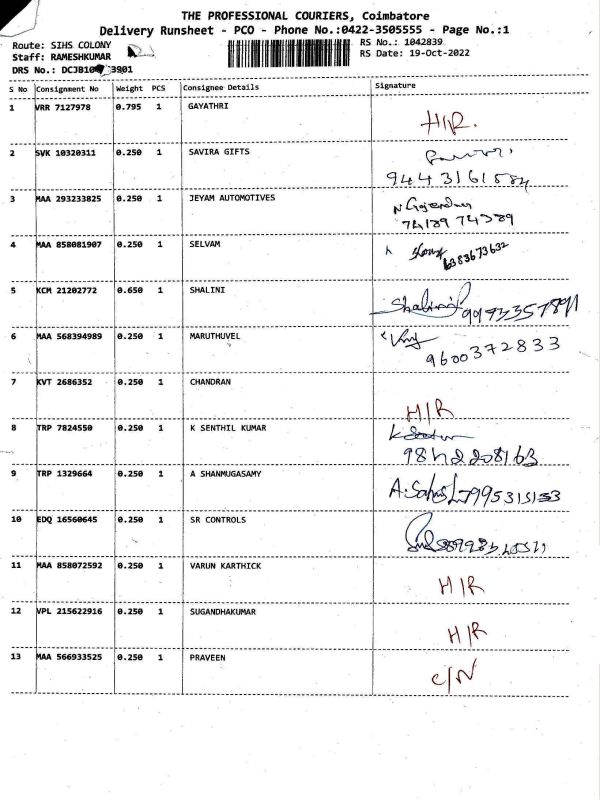 THE PROFESSIONAL COURIERS, Coimbatore
Delivery Runsheet - PCO - Phone No.:0422-3505555 - Page No.:1
Route: SIHS COLONY RS No.: 1042839
Staff: RAMESHKUMAR RS Date: 19-Oct-2022
DRS No.: DCJB10 3901
S No Consignment No Weight PCS Consignee Details Signature
1 VRR 7127978 0.795 1 GAYATHRI H/R.
2 SVK 10320311 0.250 1 SAVIRA GIFTS
3 MAA 293233825 0.250 1 JEYAM AUTOMOTIVES
4 MAA 858081907 0.250 1 SELVAM 6383673632
5 KCM 21202772 0.650 1 SHALINI Shalini
6 MAA 568394989 0.250 1 MARUTHUVEL
9600372833
7 KVT 2686352 0.250 1 CHANDRAN H/R
8 TRP 7824550 0.250 1 K SENTHIL KUMAR
9 TRP 1329664 0.250 1 A SHANMUGASAMY
10 EDQ 16560645 0.250 1 SR CONTROLS
11 MAA 858072592 0.250 1 VARUN KARTHICK H/R
12 VPL 215622916 0.250 1 SUGANDHAKUMAR H/R
13 MAA 566933525 0.250 1 PRAVEEN C/N